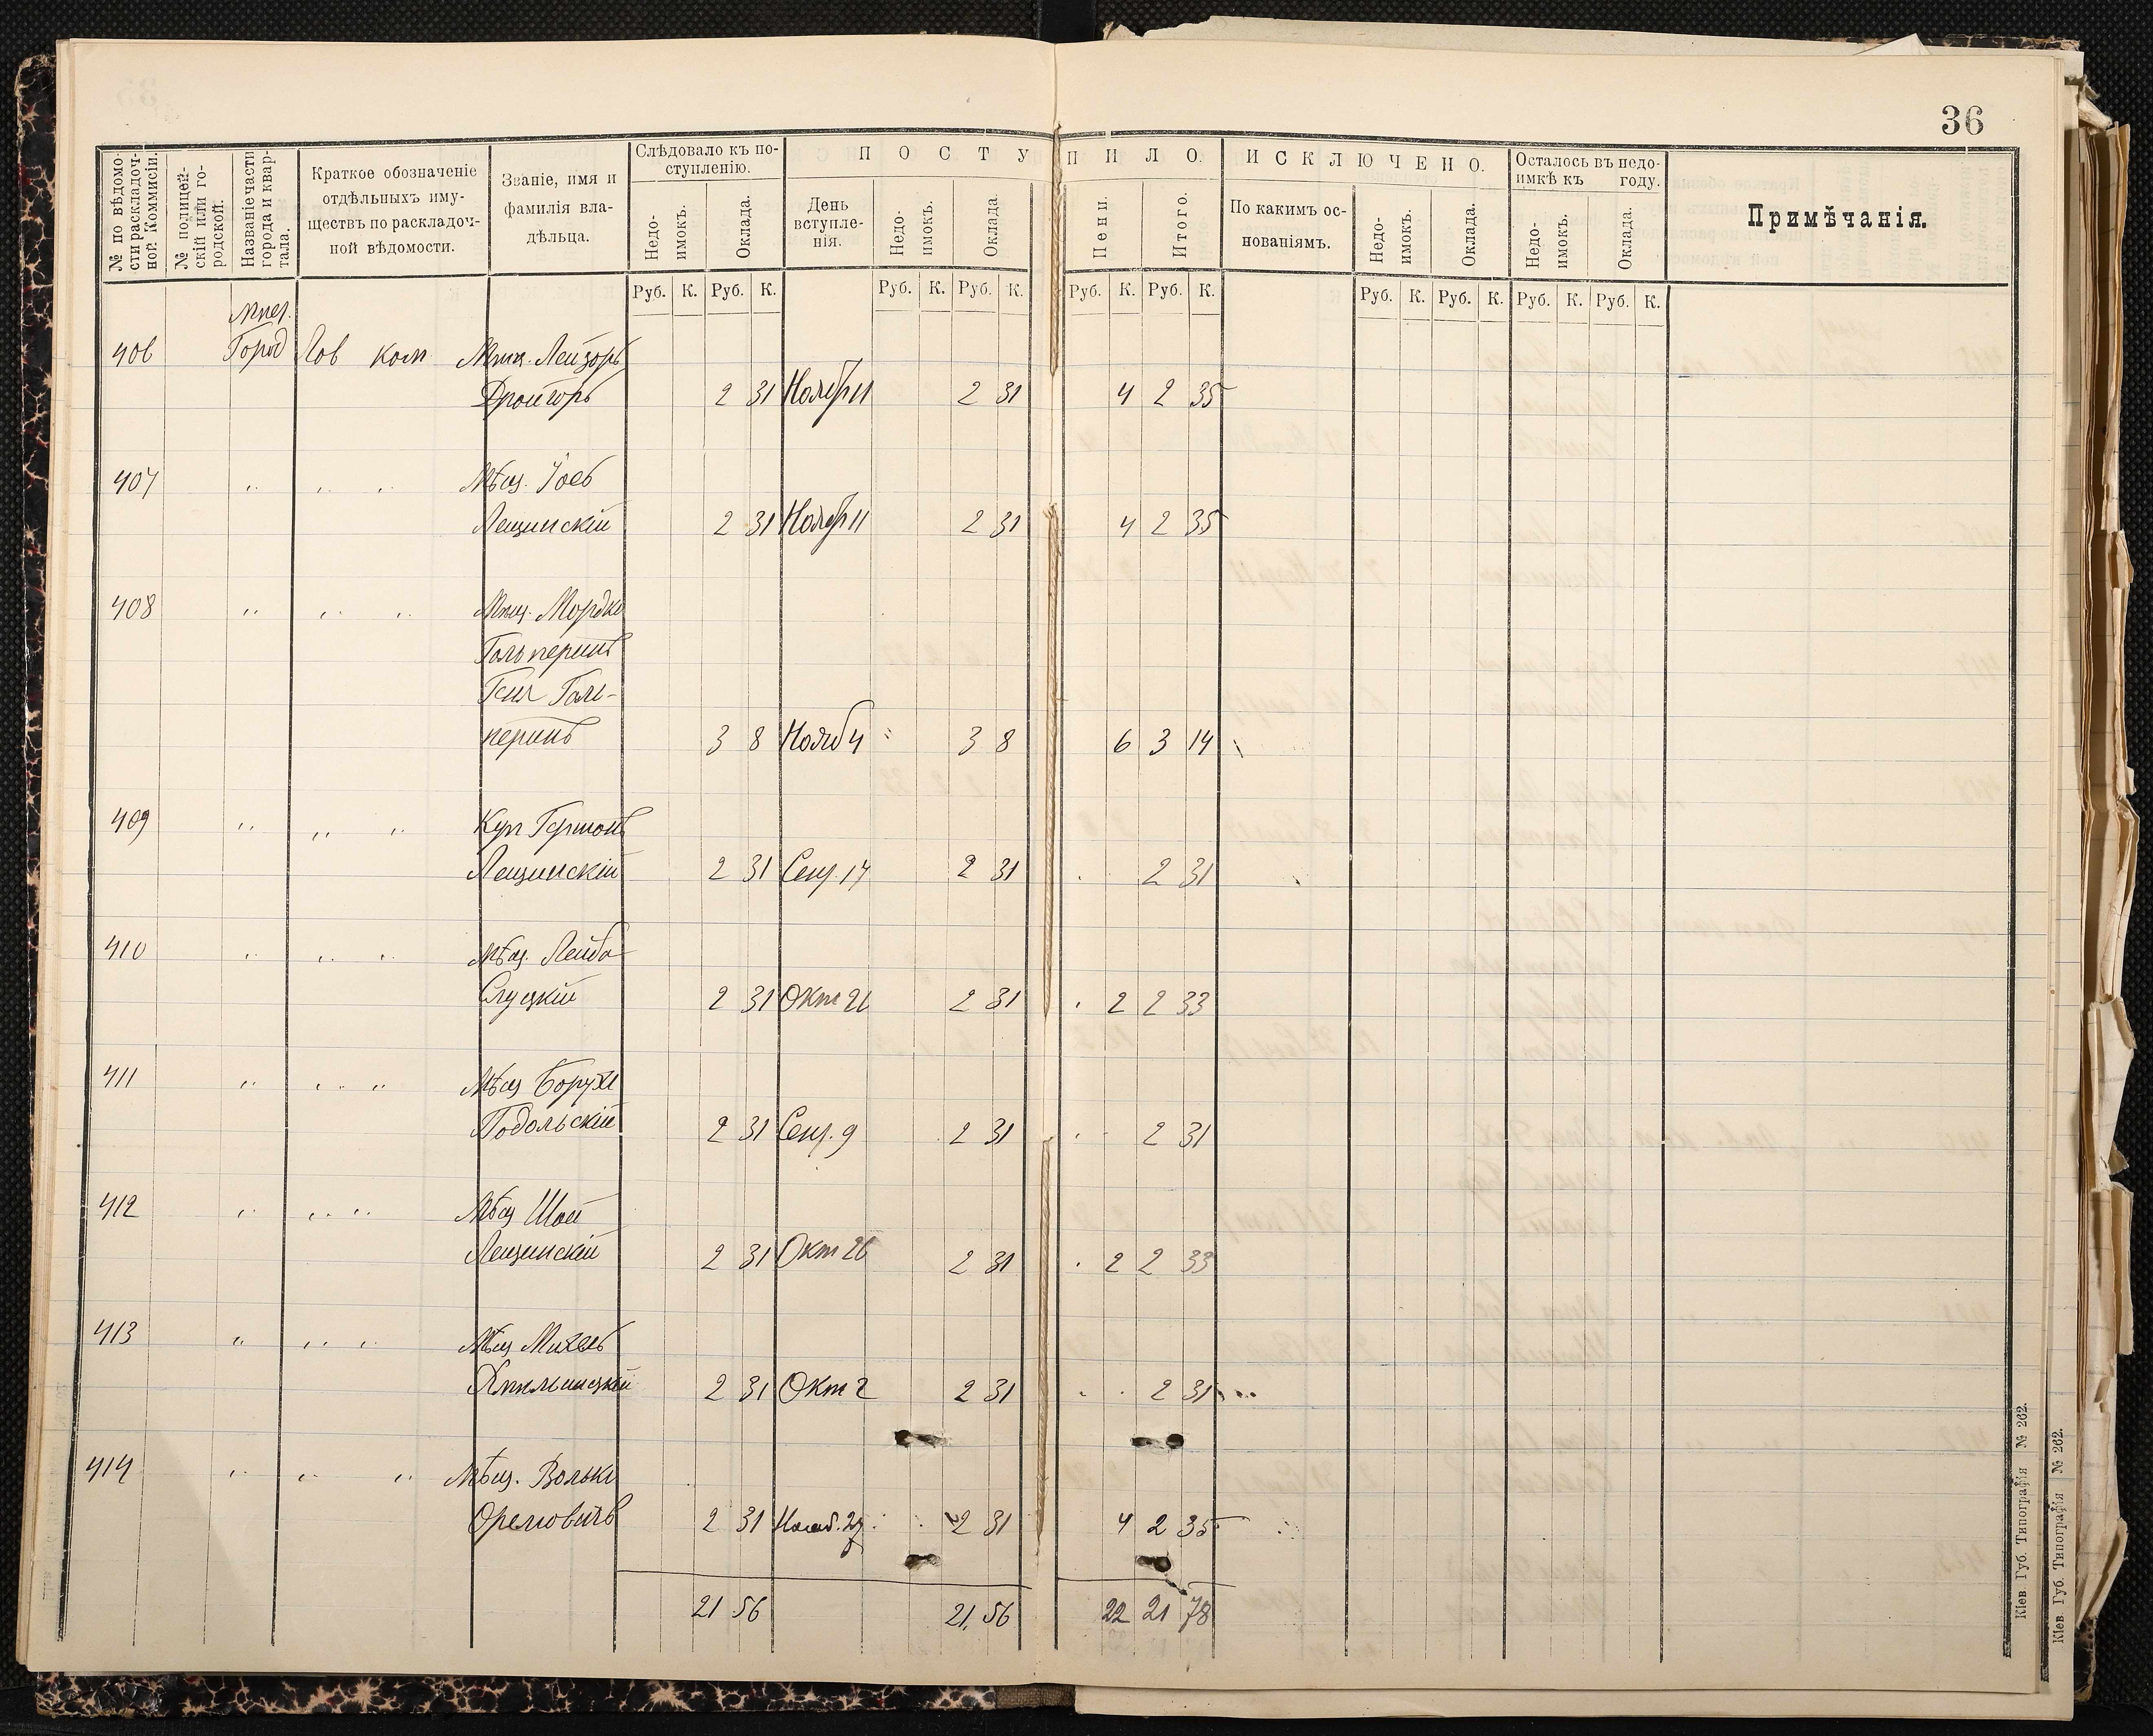 36
№ по вѣдомо-
сти раскладоч-
ной Коммисіи.
№ полицей-
скій или го-
родской.
Названіе части
города и квар-
тала.
Краткое обозначеніе
отдѣльныхъ иму-
ществъ по раскладоч-
ной вѣдомости.
Званіе, имя и
фамилія вла-
дѣльца.
Слѣдовало къ по-
ступленію.
Недо-
имокъ.
Оклада.
П О С Т У П И Л О.
День
вступле-
нія.
Недо-
имокъ.
Оклада.
Пени.
Итого.
И С К Л Ю Ч Е Н О.
По какимъ ос-
нованіямъ.
Недо-
имокъ.
Оклада.
Осталось въ недо-
имкѣ къ году.
Недо-
имокъ.
Оклада.
Примѣчанія.
Руб. К. Руб. К. Руб. К. Руб. К. Руб. К. Руб. К. Руб. К. Руб. К. Руб. К. Руб. К.
406 Город Лав ком Мѣщ. Лейзоръ
2 31 Ноябр 11 2 31 4 2 35
407 " " " Мѣщ. Іосъ
Лещинскій 2 31 Ноябр 11 2 31 4 2 35
408 " " " Мѣщ. Мордко
Гольперинъ
Голь-
перинъ 3 8 Нояб 4 3 8 6 3 14
409 " " " Куп Гершонъ
Лещинскій 2 31 Сен. 17 2 31 2 31
410 " " " Мѣщ. Лейба
Слуцкій 2 31 Окт 26 2 31 2 2 33
411 " " " Мѣщ Борухъ
Подольскій 2 31 Сен. 9 2 31 2 31
412 " " " Мѣщ Шая
Лещинскій 2 31 Окт 26 2 31 2 2 33
413 " " " Мѣщ Михель
Хмельницкій 2 31 Окт 2 2 31 2 31
414 " " " Мѣщ. Волько
2 31 Нояб. 27 2 31 4 2 35
21 56 21 56 22 21 78
Кіев. Губ. Типографія № 262.
Кіев. Губ. Типографія № 262.